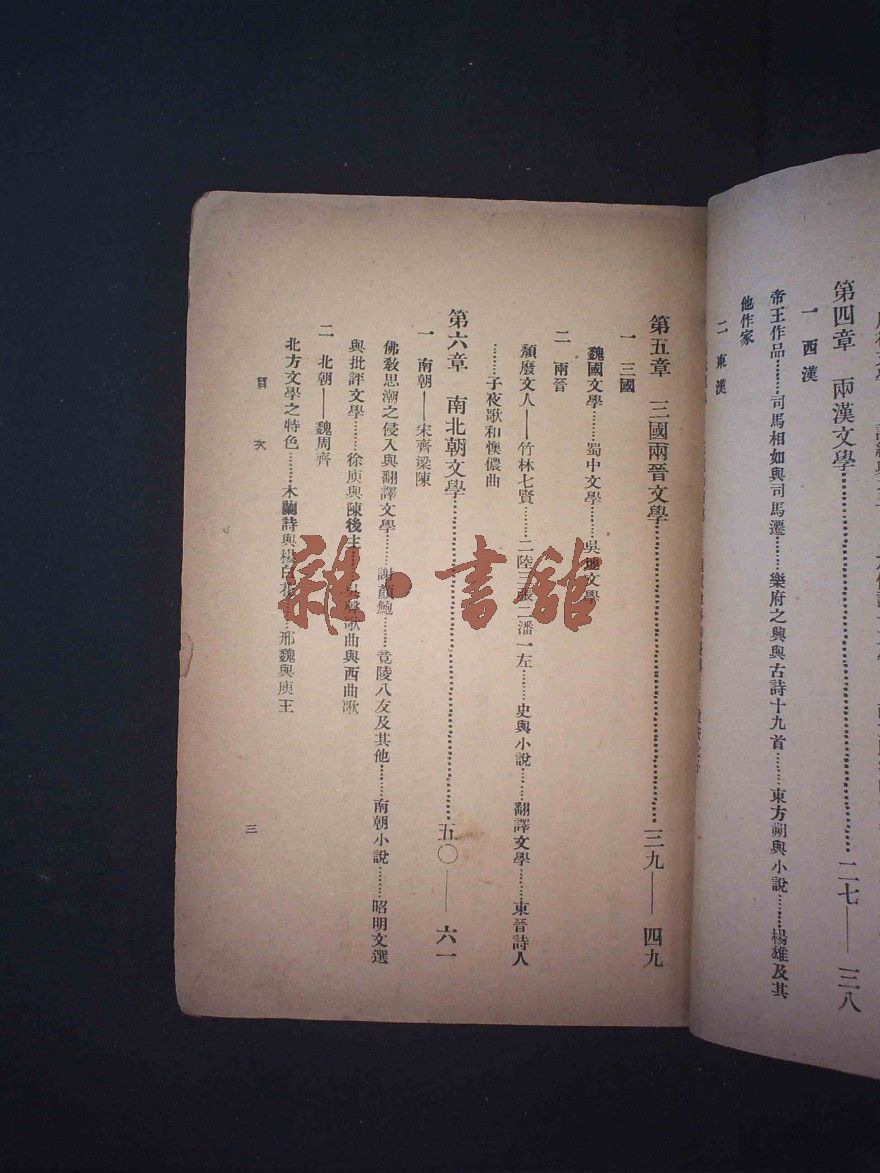 第四章　兩漢文學………二七——三八
一　西漢
帝王作品………司馬相如與司馬遷………樂府之興與古詩十九首………東方朔與小說………楊雄及其
他作家
二　東漢
第五章　三國兩晉文學………三九——四九
一　三國
魏國文學………蜀中文學………吳地文學
二　兩晉
頹廢文人——竹林七賢………二陸三張二潘一左………史與小說………翻譯文學………東晉詩人
………子夜歌和懊儂曲
第六章　南北朝文學………五〇——六一
一　南朝——宋齊梁陳
佛教思潮之侵入與翻譯文學………謝顏鮑………竟陵八友及其他………南朝小說………昭明文選
與批評文學………徐庾與陳後主………吳聲歌曲與西曲歌
二　北朝——魏周齊
北方文學之特色………木蘭詩與楊白花………邢魏與庾王
目　次
三
雜·書館